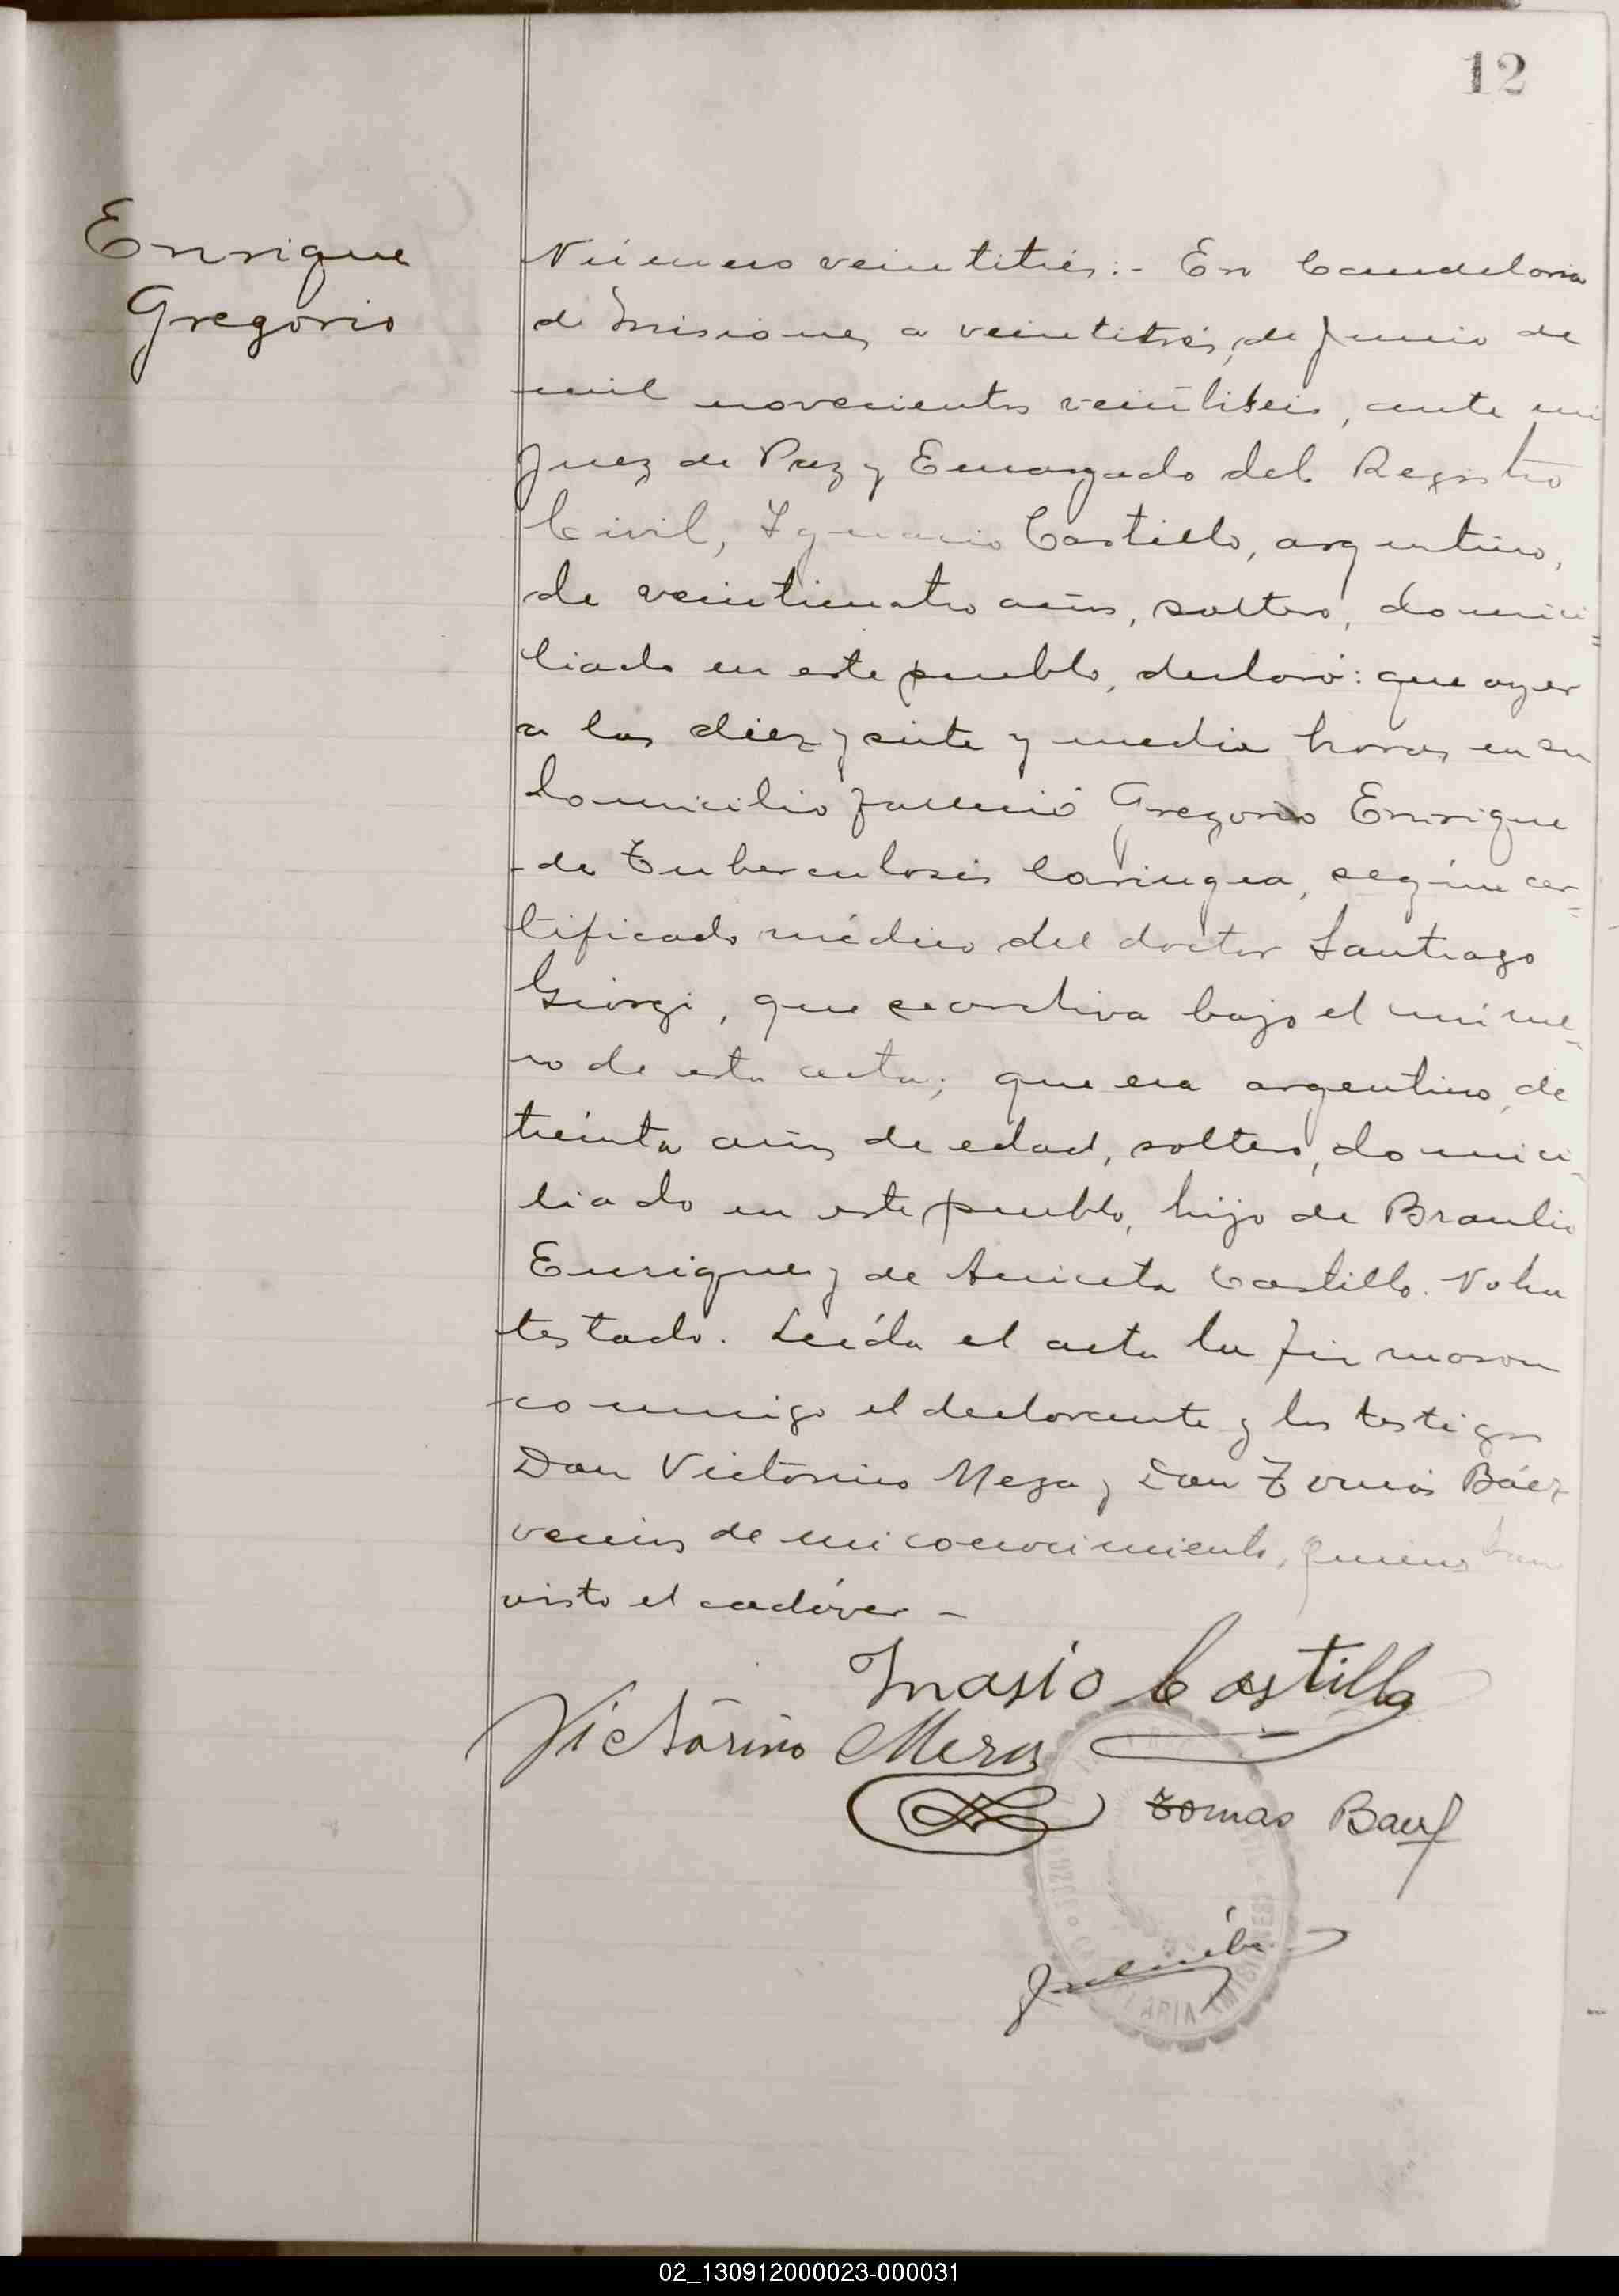 12
Enrique
Gregorio
Número veintitrés:- En Candelaria
de Misiones a veintitrés, de Junio de
mil novecientos veintiseis, ante mi
Juez de Paz y Encargado del Registro
Civil, Ignacio Castillo, argentino,
de veinticuatro años, soltero, domici=
liado en este pueblo, declaró: que ayer
a las diez y siete y media horas en su
domicilio falleció Gregorio Enrique
de Tuberculosis laringea, según cer=
tificado médico del doctor Santiago
Giorgi, que se archiva bajo el núme-
ro de esta acta; que era argentino, de
treinta años de edad, soltero, domici-
liado en este pueblo, hijo de Braulio
Enrique y de Aniceta Castillo. No ha
testado. Leída el acta la firmaron
conmigo el declarante y los testigos
Don Victorino Meza y Don Tomás Báez
vecinos de mi conocimiento, quienes han
visto el cadáver -
Inasio Castillo
Victorino Meza
Tomas Baez
LARIA (MISIONES)
02_130912000023-000031